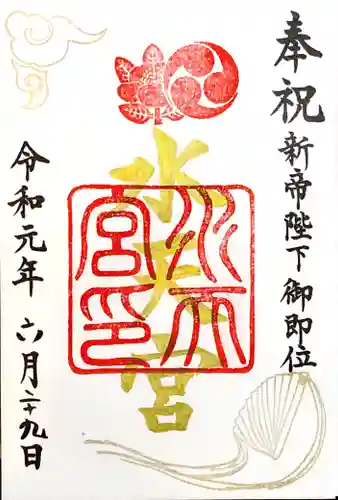 奉祝
新帝陛下御即位
水天宮
水天宮印
令和元年
六月二十九日